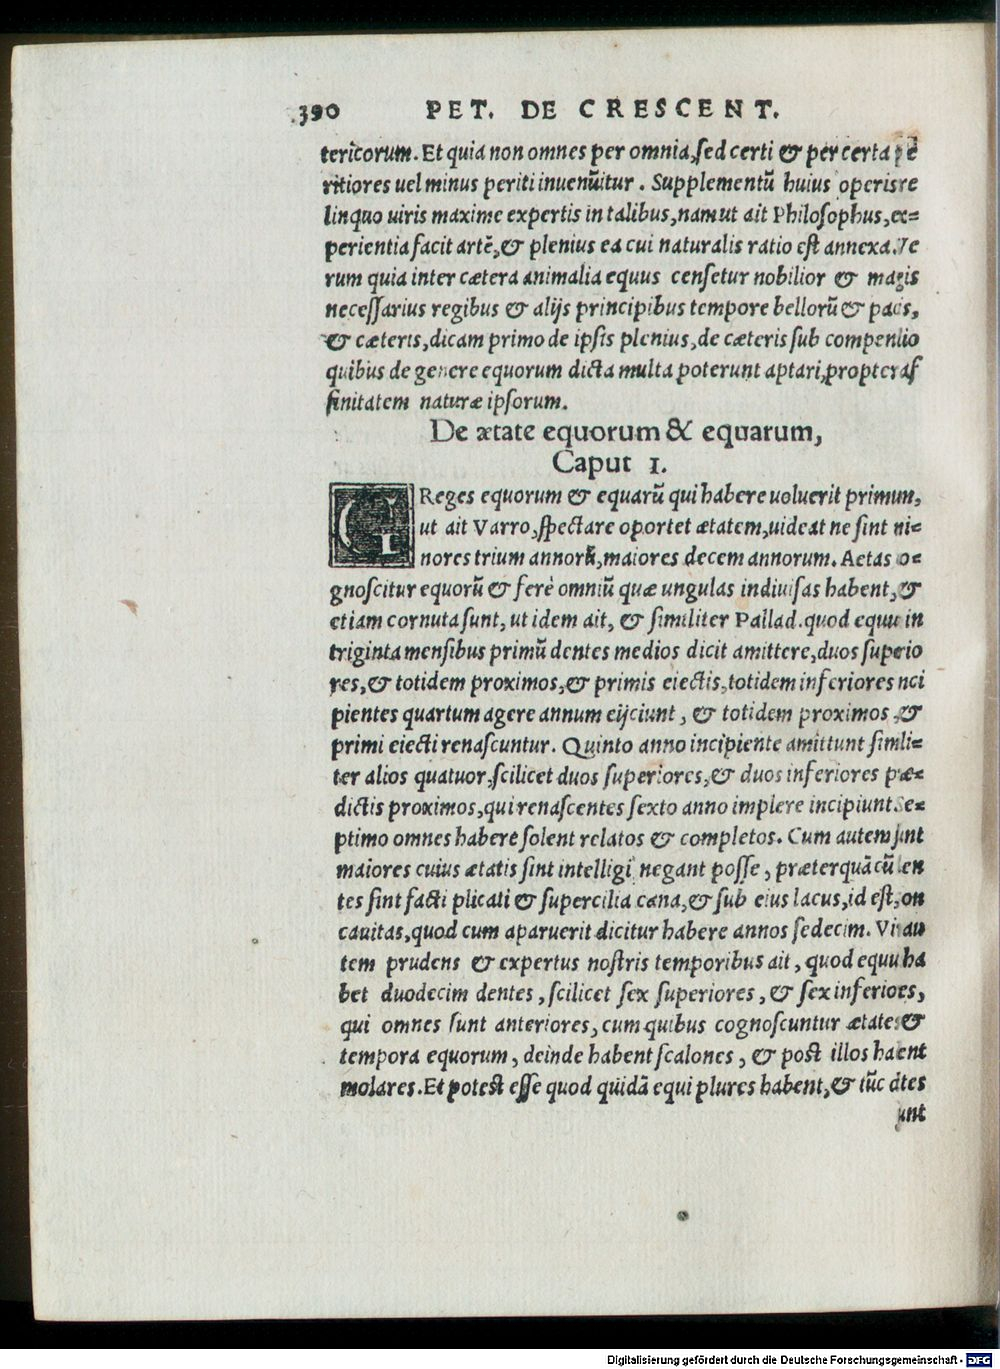 390 PET. DE CRESCENT.
tericorum. Et quia non omnes per omnia, sed certi & per certa pe
ritiores uel minus periti inueniũtur. Supplementũ huius operis re
linquo uiris maxime expertis in talibus, nam ut ait Philosophus, ex=
perientia facit artẽ, & plenius ea cui naturalis ratio est annexa. Ve
rum quia inter cætera animalia equus censetur nobilior & magis
necessarius regibus & alijs principibus tempore bellorũ & pacis,
& cæteris, dicam primo de ipsis plenius, de cæteris sub compendio
quibus de genere equorum dicta multa poterunt aptari, propter af
finitatem naturæ ipsorum.
De ætate equorum & equarum,
Caput I.
GReges equorum & equarũ qui habere uoluerit primum,
ut ait Varro, spectare oportet ætatem, uideat ne sint mi=
nores trium annorũ, maiores decem annorum. Aetas co=
gnoscitur equorũ & ferè omniũ quæ ungulas indiuisas habent, &
etiam cornuta sunt, ut idem ait, & similiter Pallad. quod equus in
triginta mensibus primũ dentes medios dicit amittere, duos superio
res, & totidem proximos, & primis eiectis, totidem inferiores inci
pientes quartum agere annum eijciunt, & totidem proximos, &
primi eiecti renascuntur. Quinto anno incipiente amittunt simili=
ter alios quatuor, scilicet duos superiores, & duos inferiores præ=
dictis proximos, qui renascentes sexto anno implere incipiunt. Se=
ptimo omnes habere solent relatos & completos. Cum autem sint
maiores cuius ætatis sint intelligi negant posse, præterquã cũ den
tes sint facti plicati & supercilia cana, & sub eius lacus, id est, con
cauitas, quod cum aparuerit dicitur habere annos sedecim. Vir au
tem prudens & expertus nostris temporibus ait, quod equus ha
bet duodecim dentes, scilicet sex superiores, & sex inferiores,
qui omnes sunt anteriores, cum quibus cognoscuntur ætates &
tempora equorum, deinde habent scalones, & post illos habent
molares. Et potest esse quod quidã equi plures habent, & tũc dẽtes
sunt
Digitalisierung gefördert durch die Deutsche Forschungsgemeinschaft - DFG